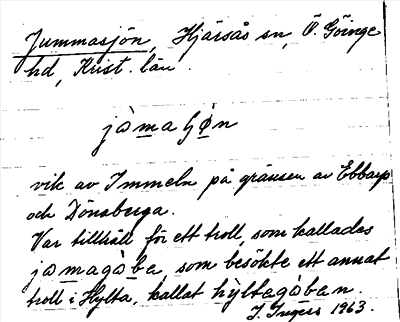 Jummasjön, Hjärsås sn, Ö. Göinge
hd, Krist. län.
jòmahø̀n
vik av Immeln på gränsen av Ebbarp
och Dönaberga.
Var tillhåll för ett troll, som kallades
jomagòba, som besökte ett annat
troll i Hylta, kallat hỳltagòban.
J. Ingers 1963.